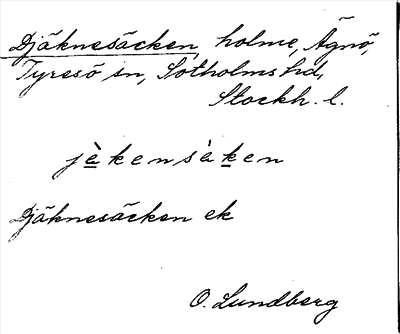 Djäknesäcken, holme, Ägnö,
Tyresö sn, Sotholms hd,
Stockh. l.
jè̱kensàḵen
Djäknesäcken ek
O. Lundberg